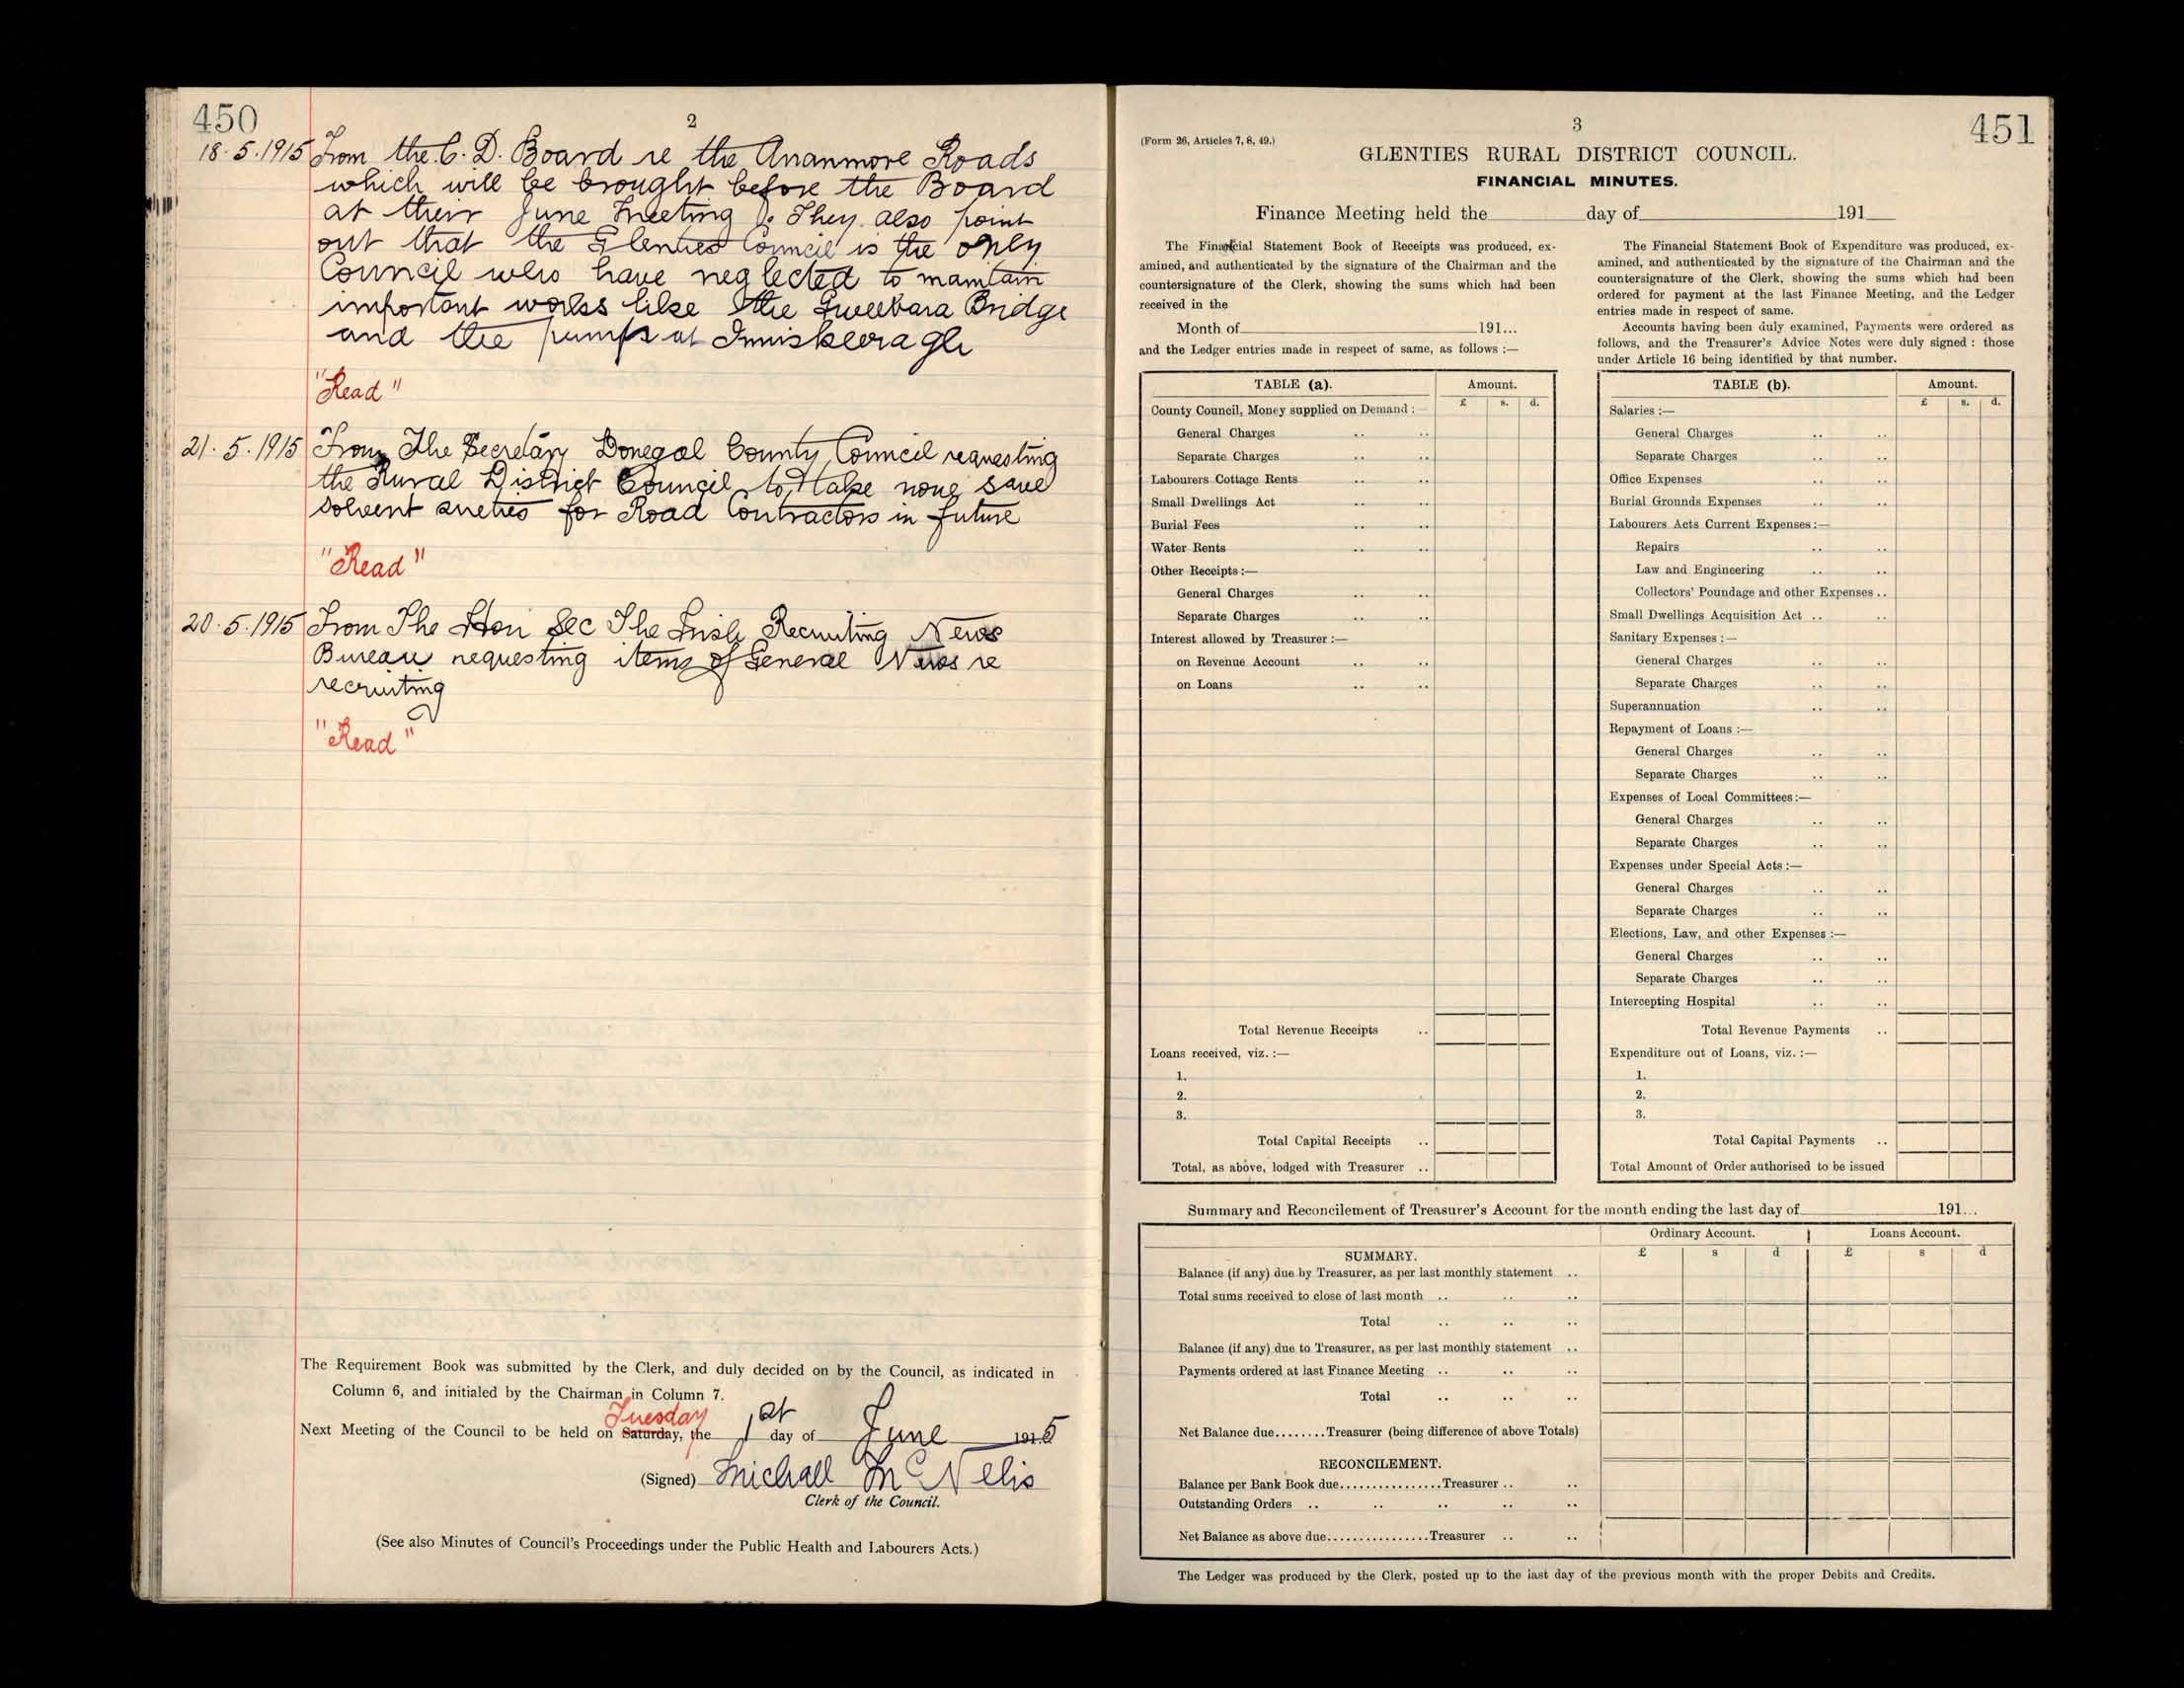 450
2
18.5.1915 From the C. D. Board re the Ananmore Roads
which will be brought before the Board
at their June Meeting. They also point
out that the Glenties Council is the only
Council who have neglected to maintain
important works like the Gweebara Bridge
and the pumps at Inniskeeragh
"Read"
21.5.1915 From The Secretary Donegal County Council requesting
the Rural District Council to take none save
solvent sureties for Road Contractors in future
"Read"
20.5.1915 From The Hon Sec The Irish Recruiting News
Bureau requesting items of General News re
recruiting
"Read"
The Requirement Book was submitted by the Clerk, and duly decided on by the Council, as indicated in
Column 6, and initialed by the Chairman in Column 7.
Tuesday
Next Meeting of the Council to be held on Saturday, the 1st day of June 1915
(Signed) Michael McNelis
Clerk of the Council.
(See also Minutes of Council's Proceedings under the Public Health and Labourers Acts.)
3
451
(Form 26, Articles 7, 8, 49.)
GLENTIES RURAL DISTRICT COUNCIL.
FINANCIAL MINUTES.
Finance Meeting held the day of 191
The Financial Statement Book of Receipts was produced, ex-
amined, and authenticated by the signature of the Chairman and the
countersignature of the Clerk, showing the sums which had been
received in the
Month of 191...
and the Ledger entries made in respect of same, as follows :—
TABLE (a). Amount.
£ s. d.
County Council, Money supplied on Demand :
General Charges .. ..
Separate Charges .. ..
Labourers Cottage Rents .. ..
Small Dwellings Act .. ..
Burial Fees .. ..
Water Rents .. ..
Other Receipts :—
General Charges .. ..
Separate Charges .. ..
Interest allowed by Treasurer :—
on Revenue Account .. ..
on Loans .. ..
Total Revenue Receipts ..
Loans received, viz. :—
1.
2.
3.
Total Capital Receipts ..
Total, as above, lodged with Treasurer ..
The Financial Statement Book of Expenditure was produced, ex-
amined, and authenticated by the signature of the Chairman and the
countersignature of the Clerk, showing the sums which had been
ordered for payment at the last Finance Meeting, and the Ledger
entries made in respect of same.
Accounts having been duly examined, Payments were ordered as
follows, and the Treasurer's Advice Notes were duly signed : those
under Article 16 being identified by that number.
TABLE (b). Amount.
£ s. d.
Salaries :—
General Charges .. ..
Separate Charges .. ..
Office Expenses .. ..
Burial Grounds Expenses .. ..
Labourers Acts Current Expenses :—
Repairs .. ..
Law and Engineering .. ..
Collectors' Poundage and other Expenses ..
Small Dwellings Acquisition Act .. ..
Sanitary Expenses :—
General Charges .. ..
Separate Charges .. ..
Superannuation .. ..
Repayment of Loans :—
General Charges .. ..
Separate Charges .. ..
Expenses of Local Committees :—
General Charges .. ..
Separate Charges .. ..
Expenses under Special Acts :—
General Charges .. ..
Separate Charges .. ..
Elections, Law, and other Expenses :—
General Charges .. ..
Separate Charges .. ..
Intercepting Hospital .. ..
Total Revenue Payments ..
Expenditure out of Loans, viz. :—
1.
2.
3.
Total Capital Payments ..
Total Amount of Order authorised to be issued
Summary and Reconcilement of Treasurer's Account for the month ending the last day of 191...
Ordinary Account. Loans Account.
£ s d £ s d
SUMMARY.
Balance (if any) due by Treasurer, as per last monthly statement ..
Total sums received to close of last month .. .. ..
Total .. .. ..
Balance (if any) due to Treasurer, as per last monthly statement ..
Payments ordered at last Finance Meeting .. .. ..
Total .. .. ..
Net Balance due........Treasurer (being difference of above Totals)
RECONCILEMENT.
Balance per Bank Book due................Treasurer .. ..
Outstanding Orders .. .. .. .. ..
Net Balance as above due................Treasurer .. ..
The Ledger was produced by the Clerk, posted up to the last day of the previous month with the proper Debits and Credits.